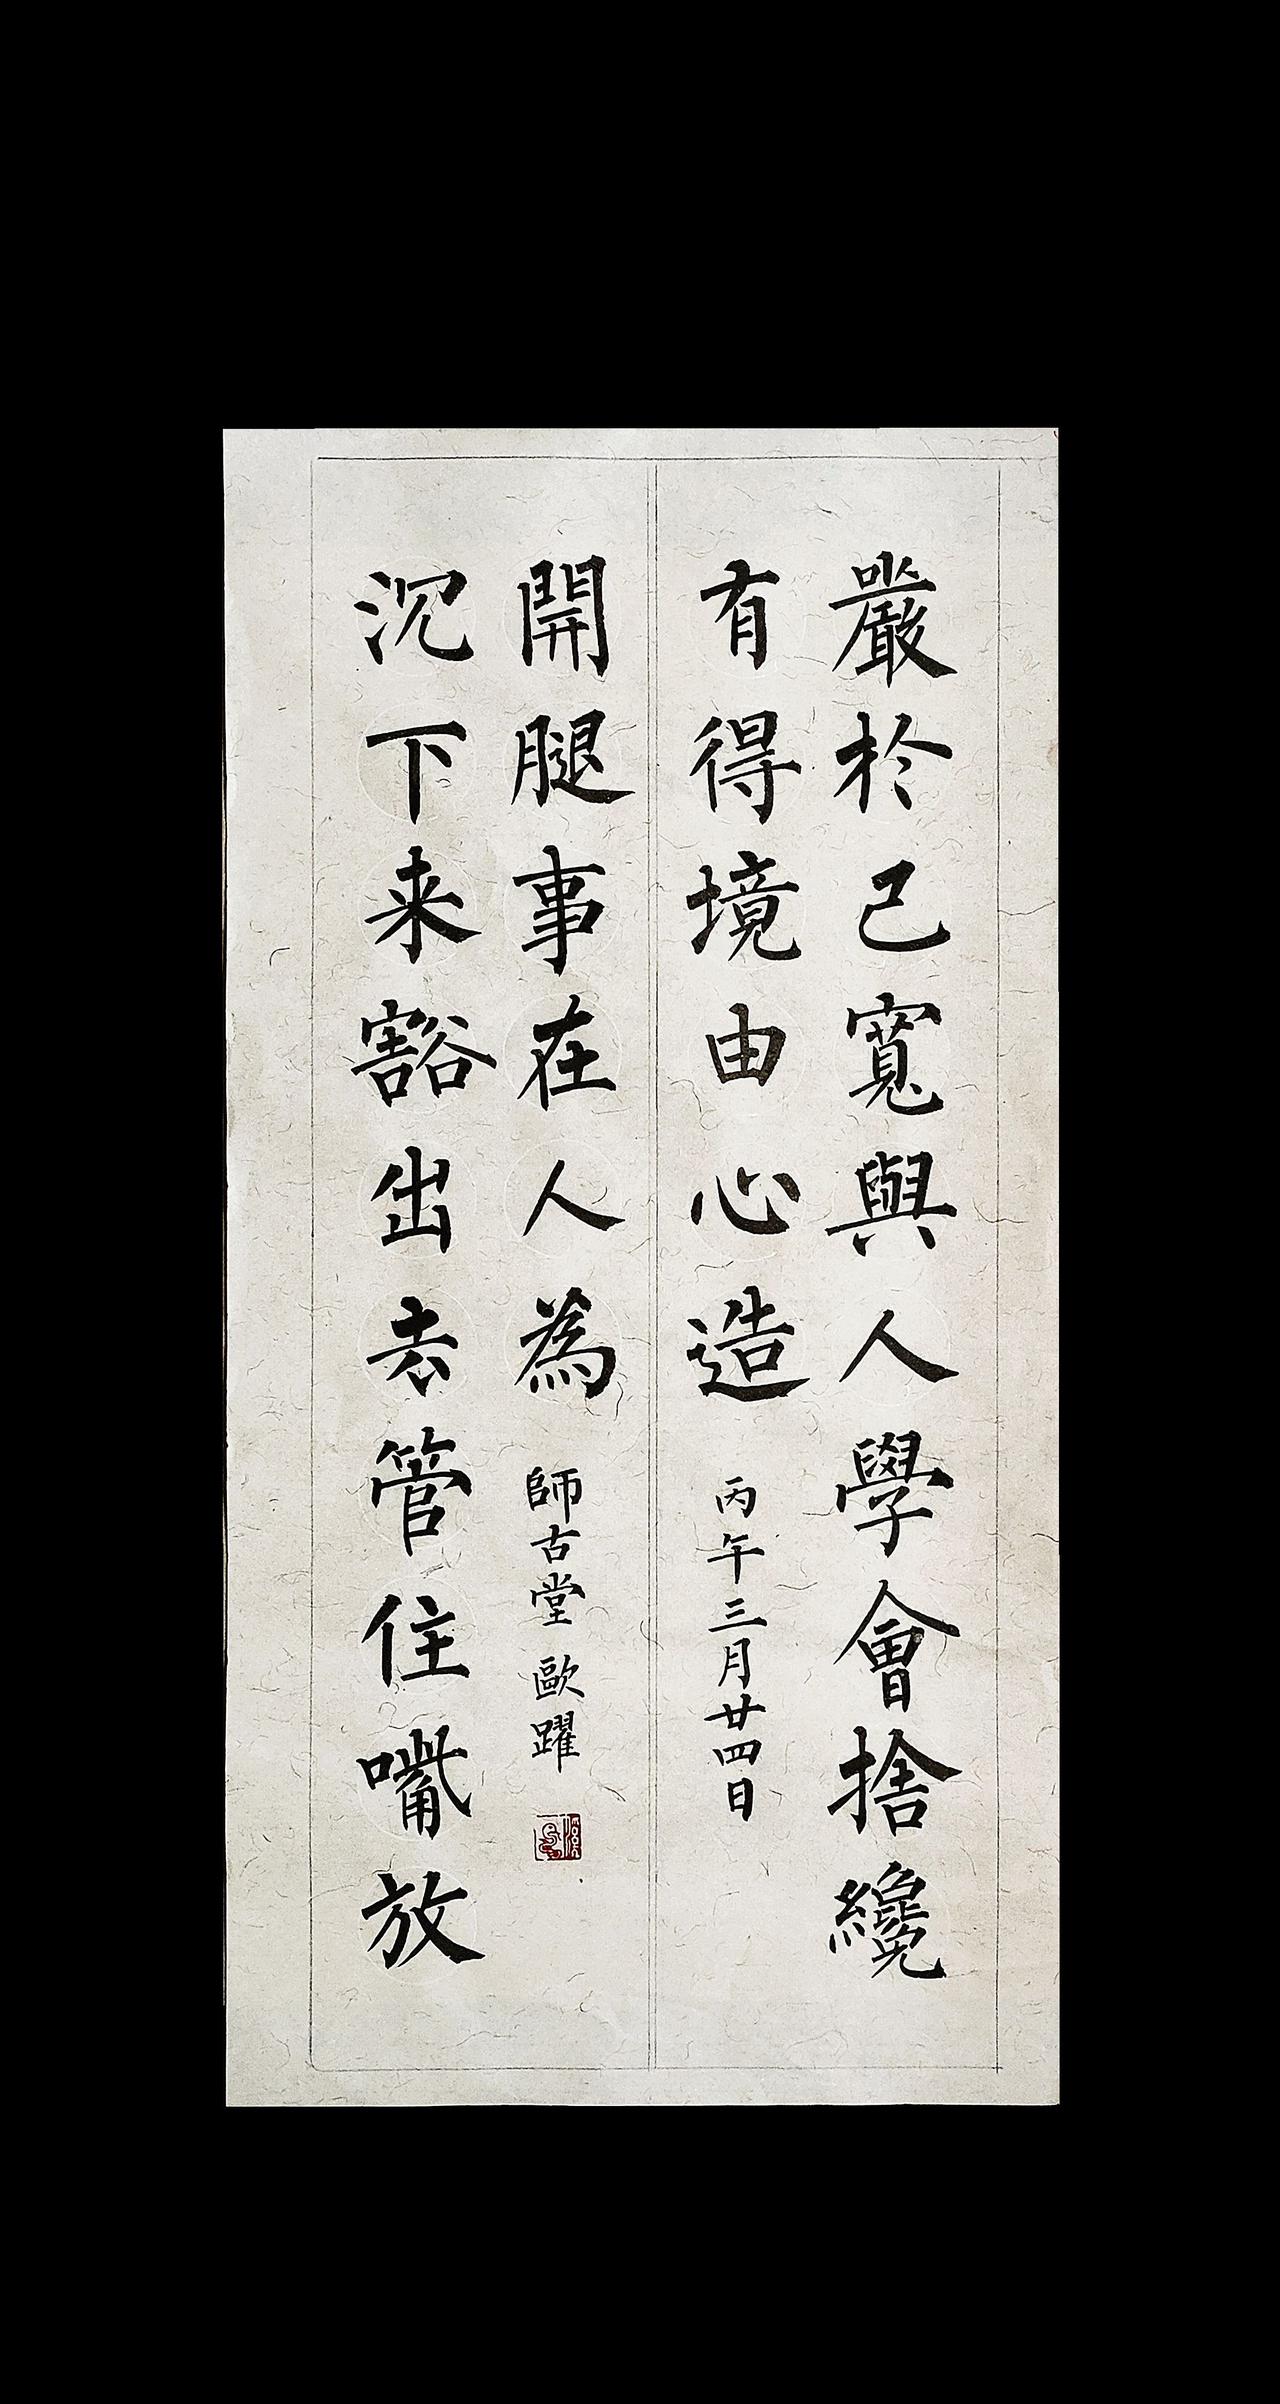 嚴於己寬與人學會捨纔
有得境由心造
丙午三月廿四日
沉下来豁出去管住嘴放
開腿事在人為
師古堂 歐躍